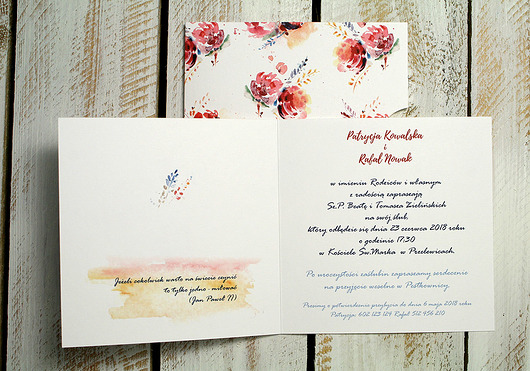 Jeżeli cokolwiek warto na świecie czynić
to tylko jedno - miłować
(Jan Paweł II)
Patrycja Kowalska
i
Rafał Nowak
w imieniu Rodziców i własnym
z radością zapraszają
Sz.P. Beatę i Tomasza Zielińskich
na swój ślub,
który odbędzie się dnia 23 czerwca 2018 roku
o godzinie 17:30
w Kościele Św.Marka w Przelewicach.
Po uroczystości zaślubin zapraszamy serdecznie
na przyjęcie weselne w
Prosimy o potwierdzenie przybycia do dnia 6 maja 2018 roku
Patrycja: 602 123 124 Rafał 512 456 210